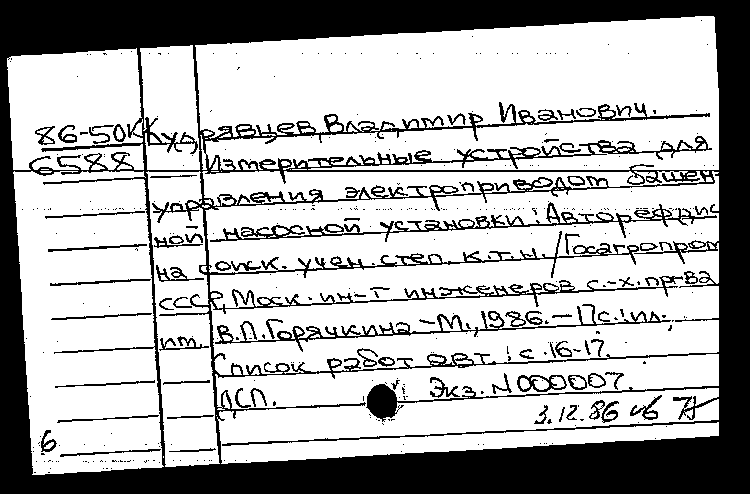 86-50К Кудрявцев, Владимир Иванович.
6588 Измерительные устройства для
управления электроприводом башен-
ной насосной установки: Автореф. дис
на соиск. учен. степ. к.т.н. / Госагропром
СССР, Моск. ин-т инженеров с.-х. пр-ва
им. В.П.Горячкина -М., 1986.-17с.:ил.;
Список работ авт.: с.16-17.
ДСП. Экз. N000007.
3.12.86
6